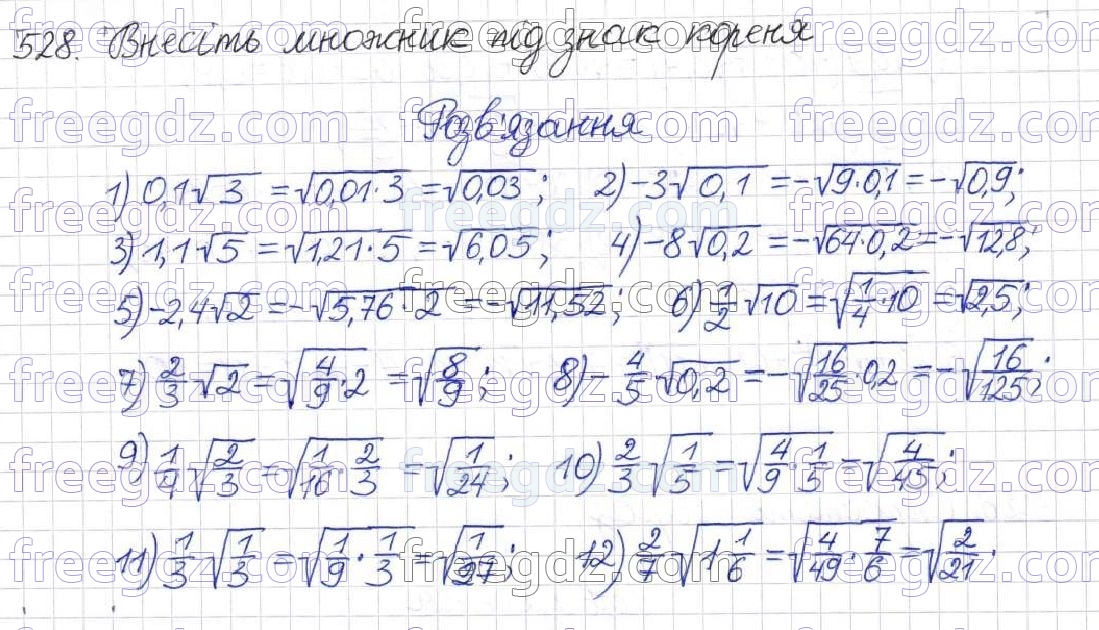 528. Внесіть множник під знак кореня
Розв'язання
1) 0,1√3 = √(0,01·3) = √0,03; 2) -3√0,1 = -√(9·0,1) = -√0,9;
3) 1,1·√5 = √(1,21·5) = √6,05; 4) -8√0,2 = -√(64·0,2) = -√12,8;
5) -2,4√2 = -√(5,76·2) = -√11,52; 6) 1/2 √10 = √(1/4·10) = √2,5;
7) 2/3·√2 = √(4/9·2) = √(8/9); 8) -4/5·√0,2 = -√(16/25·0,2) = -√(16/125);
9) 1/4 √(2/3) = √(1/16·2/3) = √(1/24); 10) 2/3 √(1/5) = √(4/9·1/5) = √(4/45);
11) 1/3 √(1/3) = √(1/9·1/3) = √(1/27); 12) 2/7 √(1 1/6) = √(4/49·7/6) = √(2/21).